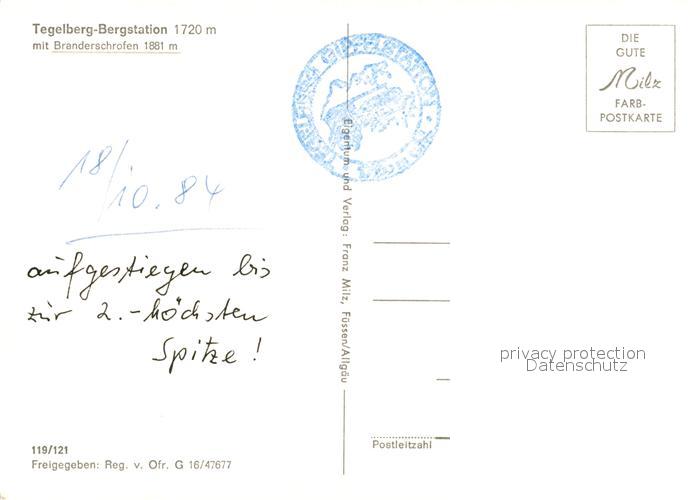 Tegelberg-Bergstation 1720 m
mit Branderschrofen 1881 m
18/10.84
aufgestiegen bis
zur 2.-höchsten
Spitze!
119/121
Freigegeben: Reg. v. Ofr. G 16/47677
Eigentum und Verlag: Franz Milz, Füssen/Allgäu
DIE
GUTE
Milz
FARB-
POSTKARTE
privacy protection
Datenschutz
Postleitzahl